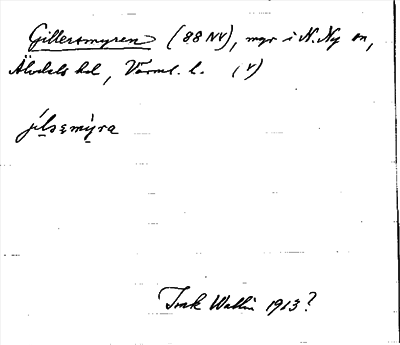 Gillersmyren (88 NV), myr i N. Ny sn,
Älvdals hd, Värml. l. (V)
Wallin 1913?